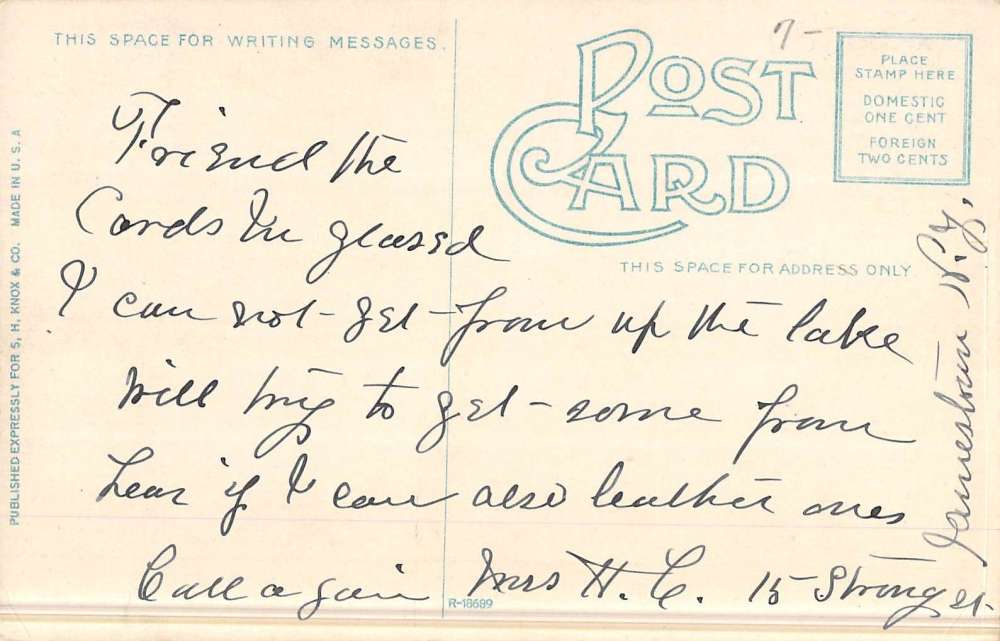 THIS SPACE FOR WRITING MESSAGES.
POST CARD
7-
PLACE
STAMP HERE
DOMESTIC
ONE CENT
FOREIGN
TWO CENTS
THIS SPACE FOR ADDRESS ONLY
Friend the
Cards
I can not- get- from up the lake
Will try to get- some from
hear if I can also leather ones
Call again Mrs H. C. 15 Strong st-
Jamestown N. Y.
PUBLISHED EXPRESSLY FOR S, H, KNOX & CO. MADE IN U. S. A
R-18689